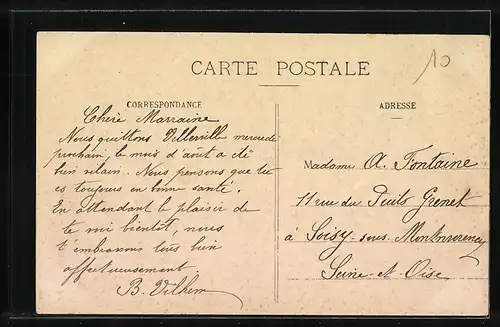 10
CARTE POSTALE
CORRESPONDANCE
ADRESSE
Chère Marraine
Nous quittons Villerville mercredi
prochain, le mois d'août a été
bien vilain. Nous pensons que tu
es toujours en bonne santé.
En attendant le plaisir de
te voir bientôt, nous
t'embrassons tous bien
affectueusement.
B. Vilhem
Madame A. Fontaine
11 rue du Puits Grenet
à Soisy-sous-Montmorency
Seine-et-Oise